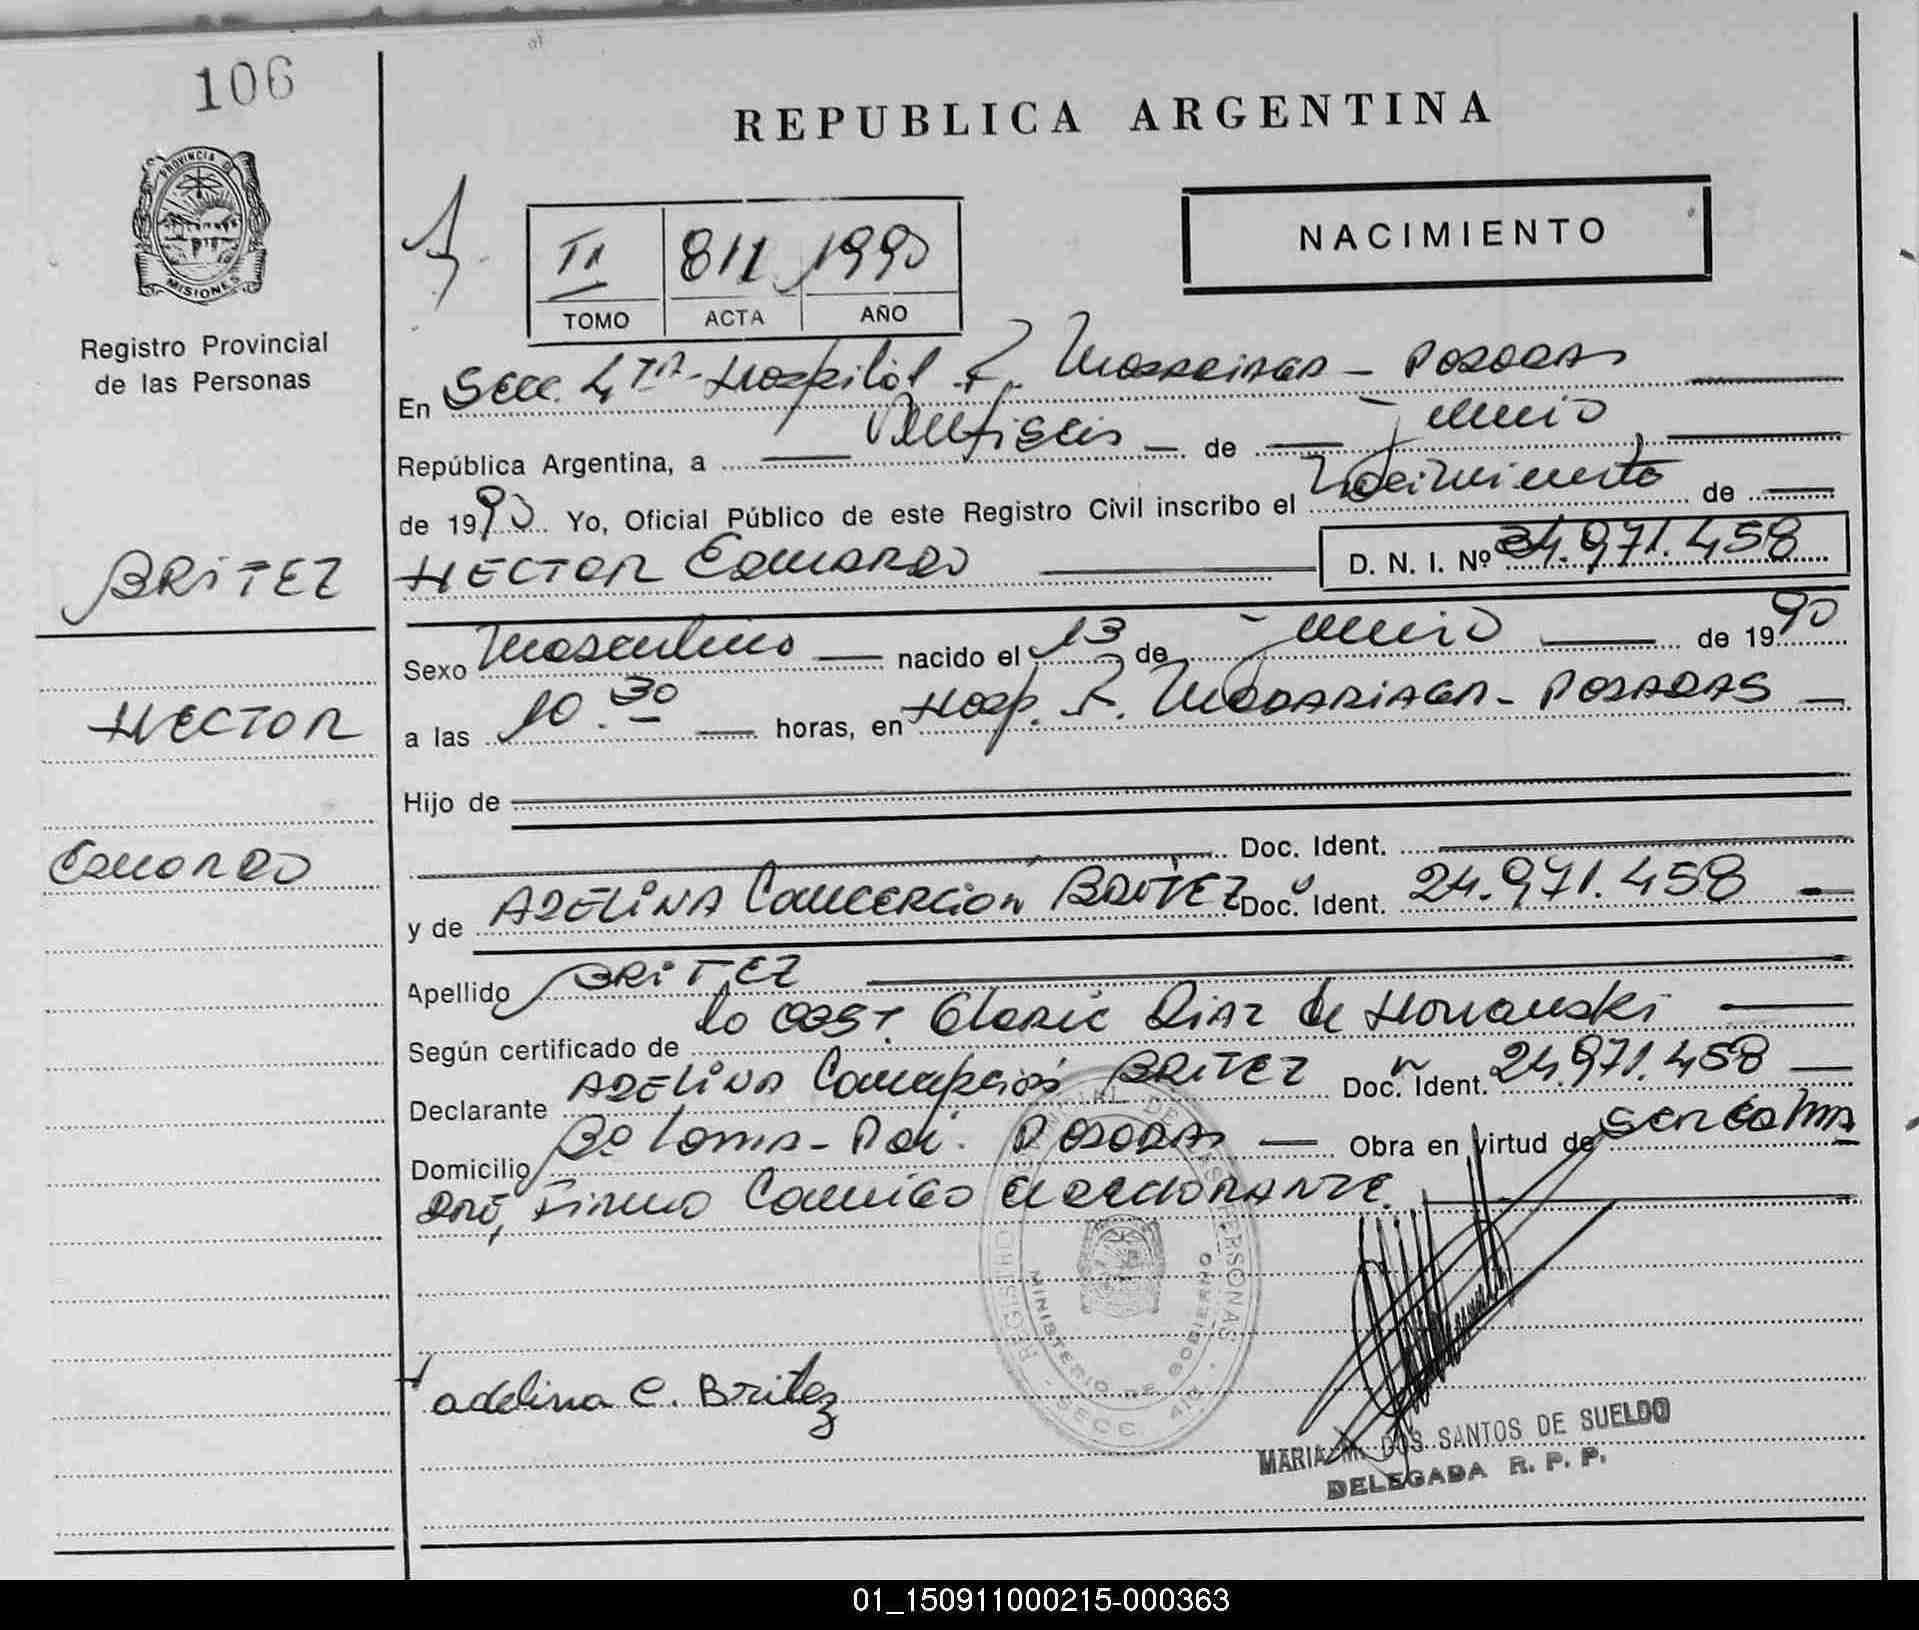 106
REPUBLICA ARGENTINA
PROVINCIA D
MISIONES
Registro Provincial
de las Personas
II 811 1990
TOMO ACTA AÑO
NACIMIENTO
En Secc. 4ta - Hospital R. Madariaga - POSADAS
República Argentina, a Veintiseis de Junio
de 1990 Yo, Oficial Público de este Registro Civil inscribo el Nacimiento de
HECTOR EDUARDO D. N. I. Nº 971.458
BRITEZ
HECTOR
EDUARDO
Sexo Masculino nacido el 13 de Junio de 1990
a las 10.30 horas, en Hosp. R. MADARIAGA - POSADAS
Hijo de
Doc. Ident.
y de ADELINA CONCEPCION BRITEZ Doc. Ident. 24.971.458
Apellido BRITEZ
Según certificado de la obst. Gloria Diaz de
Declarante ADELINA Concepcion BRITEZ Doc. Ident. 24.971.458
Domicilio Bo POSADAS Obra en virtud de ser la ma
dre, Firma Conmigo el declarante.
REGISTRO PROVINCIAL DE LAS PERSONAS
MINISTERIO DE GOBIERNO
SECC. 4ta
adelina C. Britez
MARIA M. DOS SANTOS DE SUELDO
DELEGADA R. P. P.
01_150911000215-000363